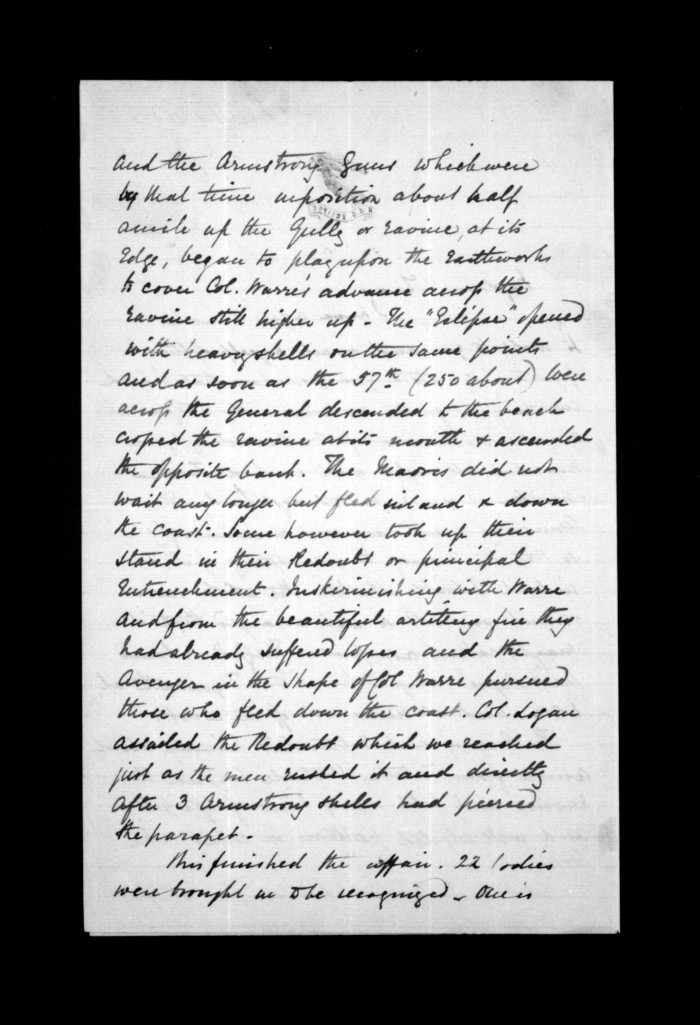 and the Armstrong Guns which were
by that time in position about half
a mile up the Gully or ravine, at its
Edge, began to play upon the Earthworks
to cover Col. Warre's advance across the
ravine still higher up - The "Eclipse" opened
with heavy shells on the same points
and as soon as the 57th (250 about) were
across the General descended to the beach
crossed the ravine at its mouth & ascended
the opposite bank. The Maoris did not
wait any longer but fled inland & down
the coast. Some however took up their
stand in their Redoubt or principal
Entrenchment. In skirmishing with Warre
and from the beautiful artillery fire they
had already suffered losses and the
Avenger in the shape of Col Warre pursued
those who fled down the coast. Col. Logan
assailed the Redoubt which we reached
just as the men rushed it and directly
after 3 Armstrong shells had pierced
the parapet.
This finished the affair. 22 bodies
were brought in to be recognized - One is